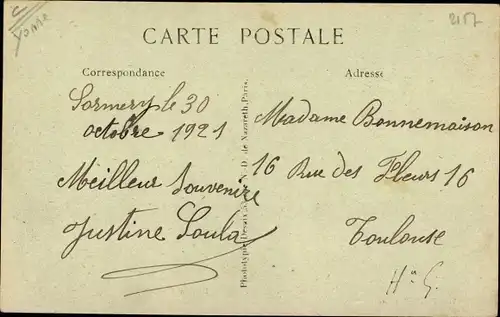 Yonne
2157
CARTE POSTALE
Correspondance
Adresse
Sormery le 30
octobre 1921
Meilleur Souvenire
Justine Soula
Madame Bonnemaison
16 Rue des Fleurs 16
Toulouse
Hte G.
N. D. de Nazareth, Paris.